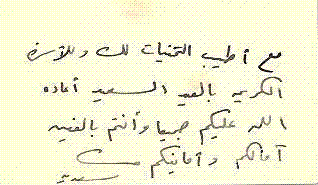 مع أطيب التمنيات لك وللأسرة
الكريمة بالعيد السعيد أعاده
الله عليكم جميعا وأنتم بالغين
آمالكم وأمانيكم